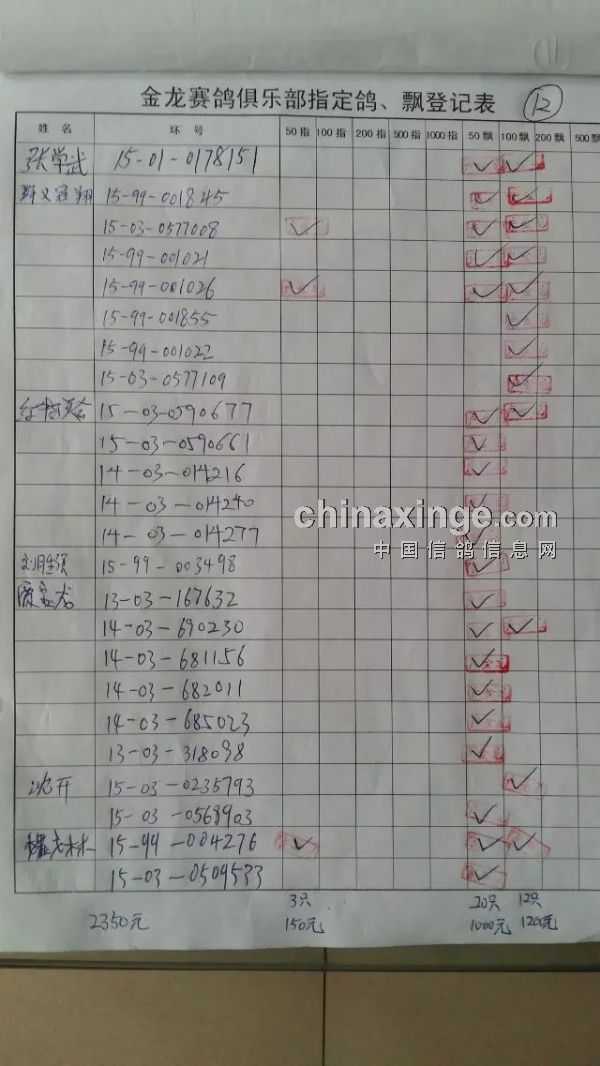 金龙赛鸽俱乐部指定鸽、飘登记表 12
姓名 环号 50指 100指 200指 500指 1000指 50飘 100飘 200飘 500飘
张学武 15-01-0178151 ✓ ✓
15-99-001845 ✓ ✓
15-03-0577008 ✓ ✓ ✓
15-99-001021 ✓ ✓
15-99-001026 ✓ ✓ ✓
15-99-001855 ✓
15-99-001022 ✓
15-03-0577109 ✓
15-03-0590677 ✓ ✓
15-03-0590661 ✓
14-03-014216 ✓
14-03-014240 ✓
14-03-014277 ✓
15-99-003498 ✓
13-03-167632 ✓
14-03-690230 ✓ ✓
14-03-681156 ✓
14-03-682011 ✓
14-03-685023 ✓
13-03-318098 ✓
沈开 15-03-0235793 ✓
15-03-0568903 ✓
15-99-004276 ✓ ✓ ✓
15-03-0509533 ✓
3只 20只 12只
2350元 150元 1000元 1200元
chinaxinge.com
中国信鸽信息网